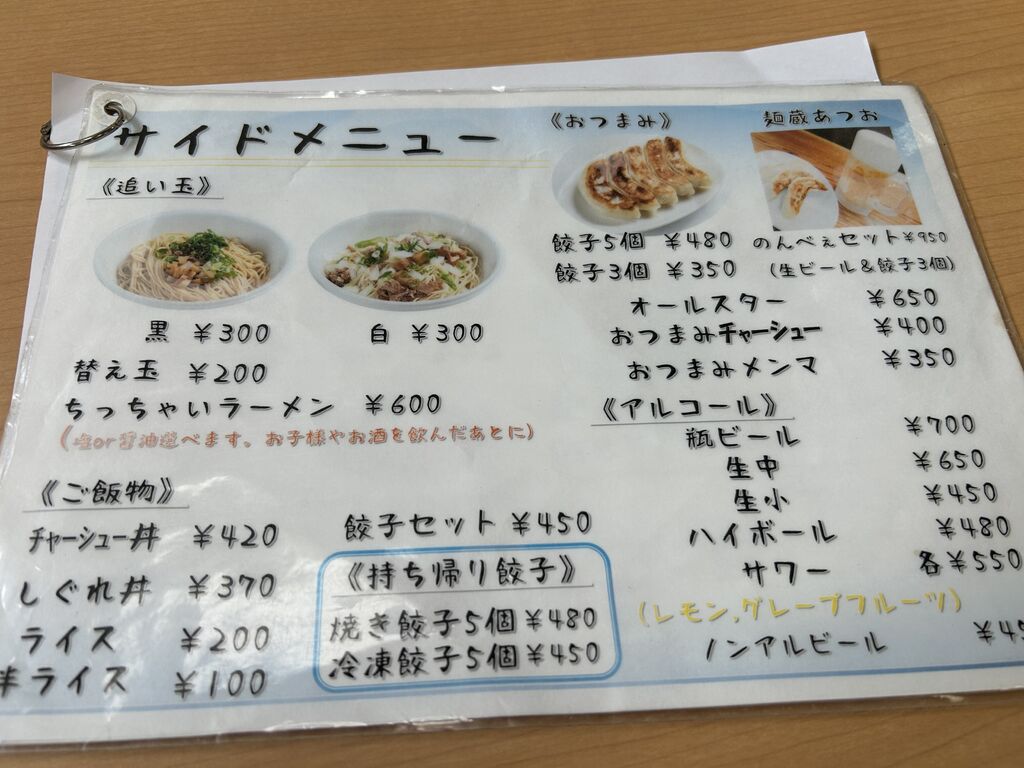 サイドメニュー
《追い玉》
黒 ¥300
白 ¥300
替え玉 ¥200
ちっちゃいラーメン ¥600
(塩or醤油選べます。お子様やお酒を飲んだあとに)
《ご飯物》
チャーシュー丼 ¥420
しぐれ丼 ¥370
ライス ¥200
半ライス ¥100
餃子セット ¥450
《持ち帰り餃子》
焼き餃子5個 ¥480
冷凍餃子5個 ¥450
《おつまみ》
麺蔵あつお
餃子5個 ¥480
餃子3個 ¥350
のんべぇセット ¥950
(生ビール&餃子3個)
オールスター ¥650
おつまみチャーシュー ¥400
おつまみメンマ ¥350
《アルコール》
瓶ビール ¥700
生中 ¥650
生小 ¥450
ハイボール ¥480
サワー 各¥550
(レモン,グレープフルーツ)
ノンアルビール